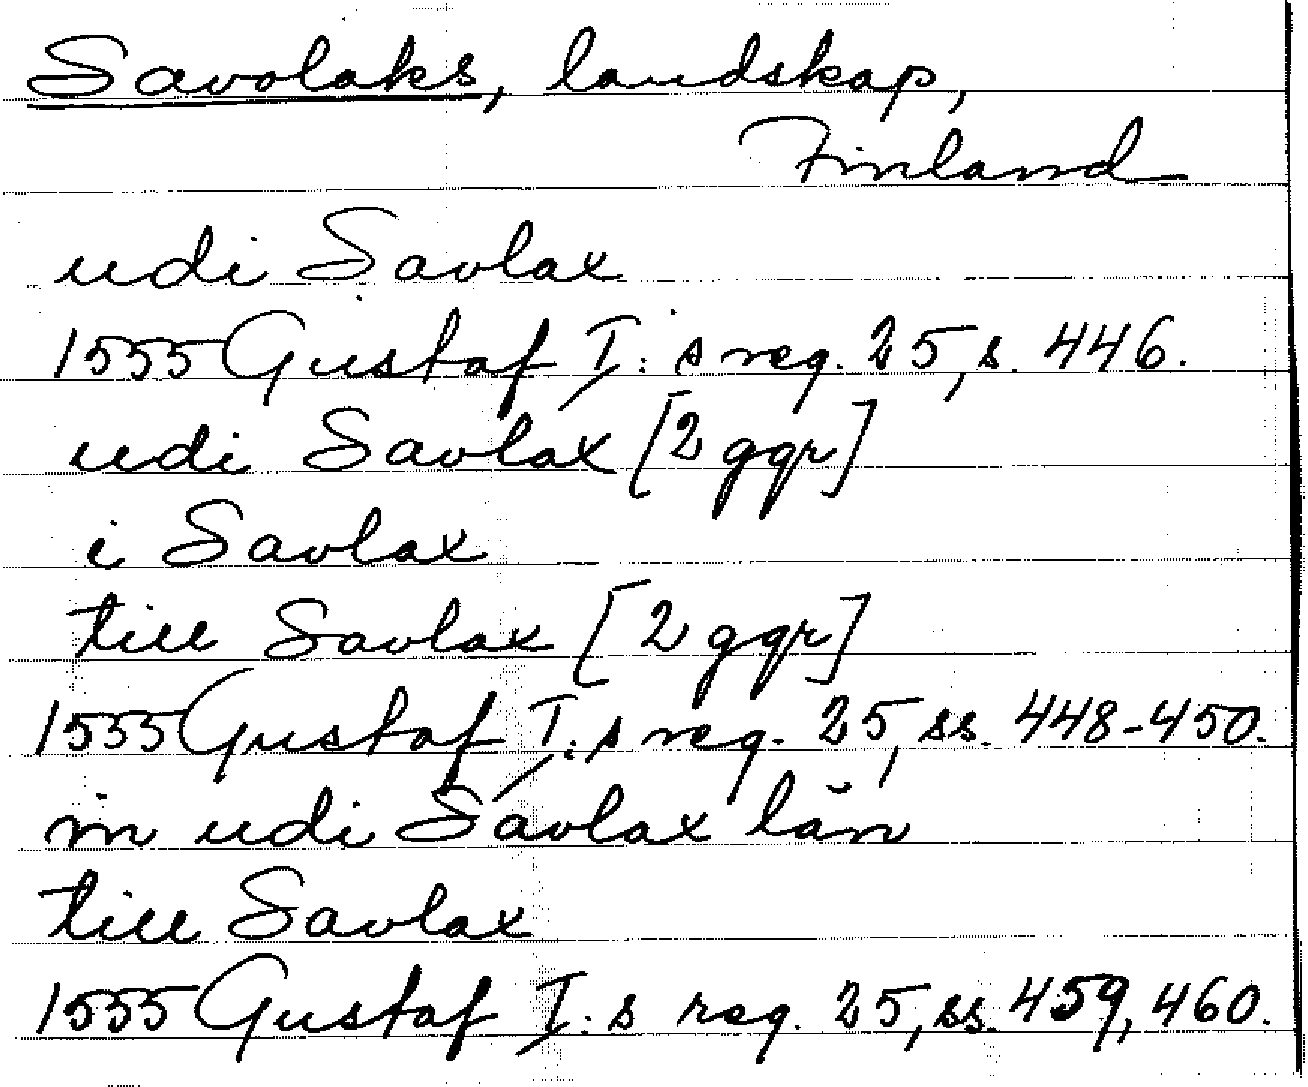 Savolaks, landskap,
Finland
udi Savlax
1555 Gustaf I:s reg. 25, s. 446.
udi Savlax [2 ggr]
i Savlax
till Savlax [2 ggr]
1555 Gustaf I:s reg. 25, ss. 448-450.
in udi Savlax län
till Savlax
1555 Gustaf I:s reg. 25, ss. 459, 460.